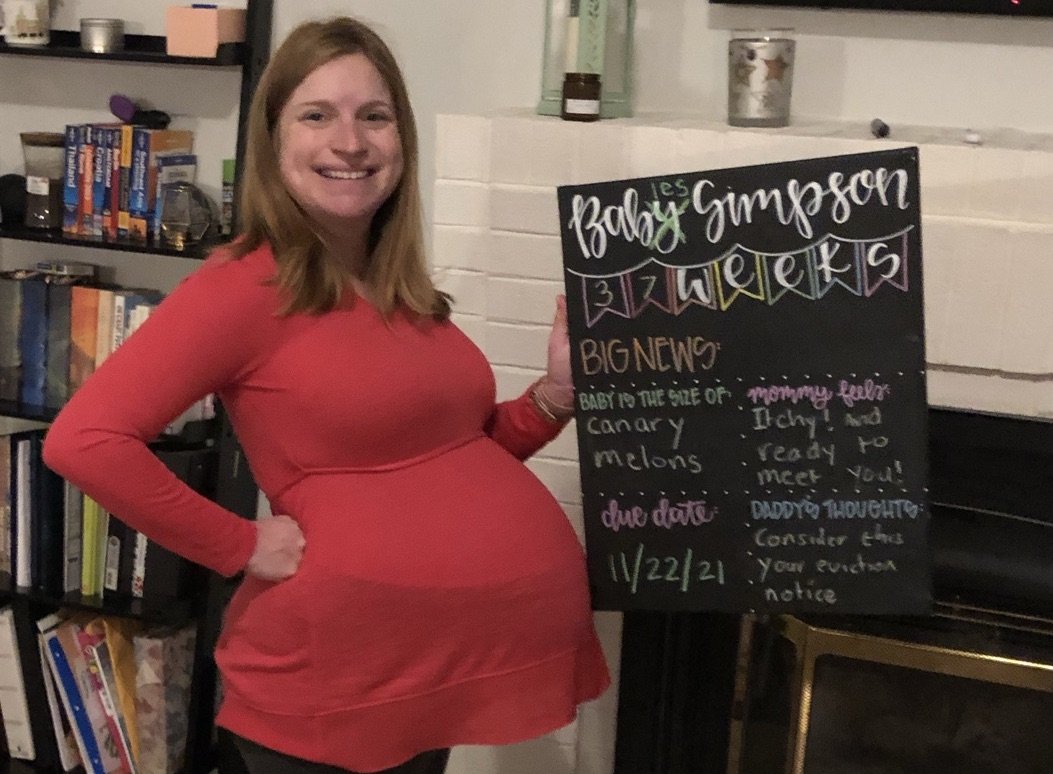 Babyies Simpson
37 WEEKS
BIG NEWS:
BABY IS THE SIZE OF:
canary
melons
mommy feels:
Itchy! and
ready to
meet you!
due date:
11/22/21
DADDY'S THOUGHTS:
Consider this
your eviction
notice
Thailand
Croatia